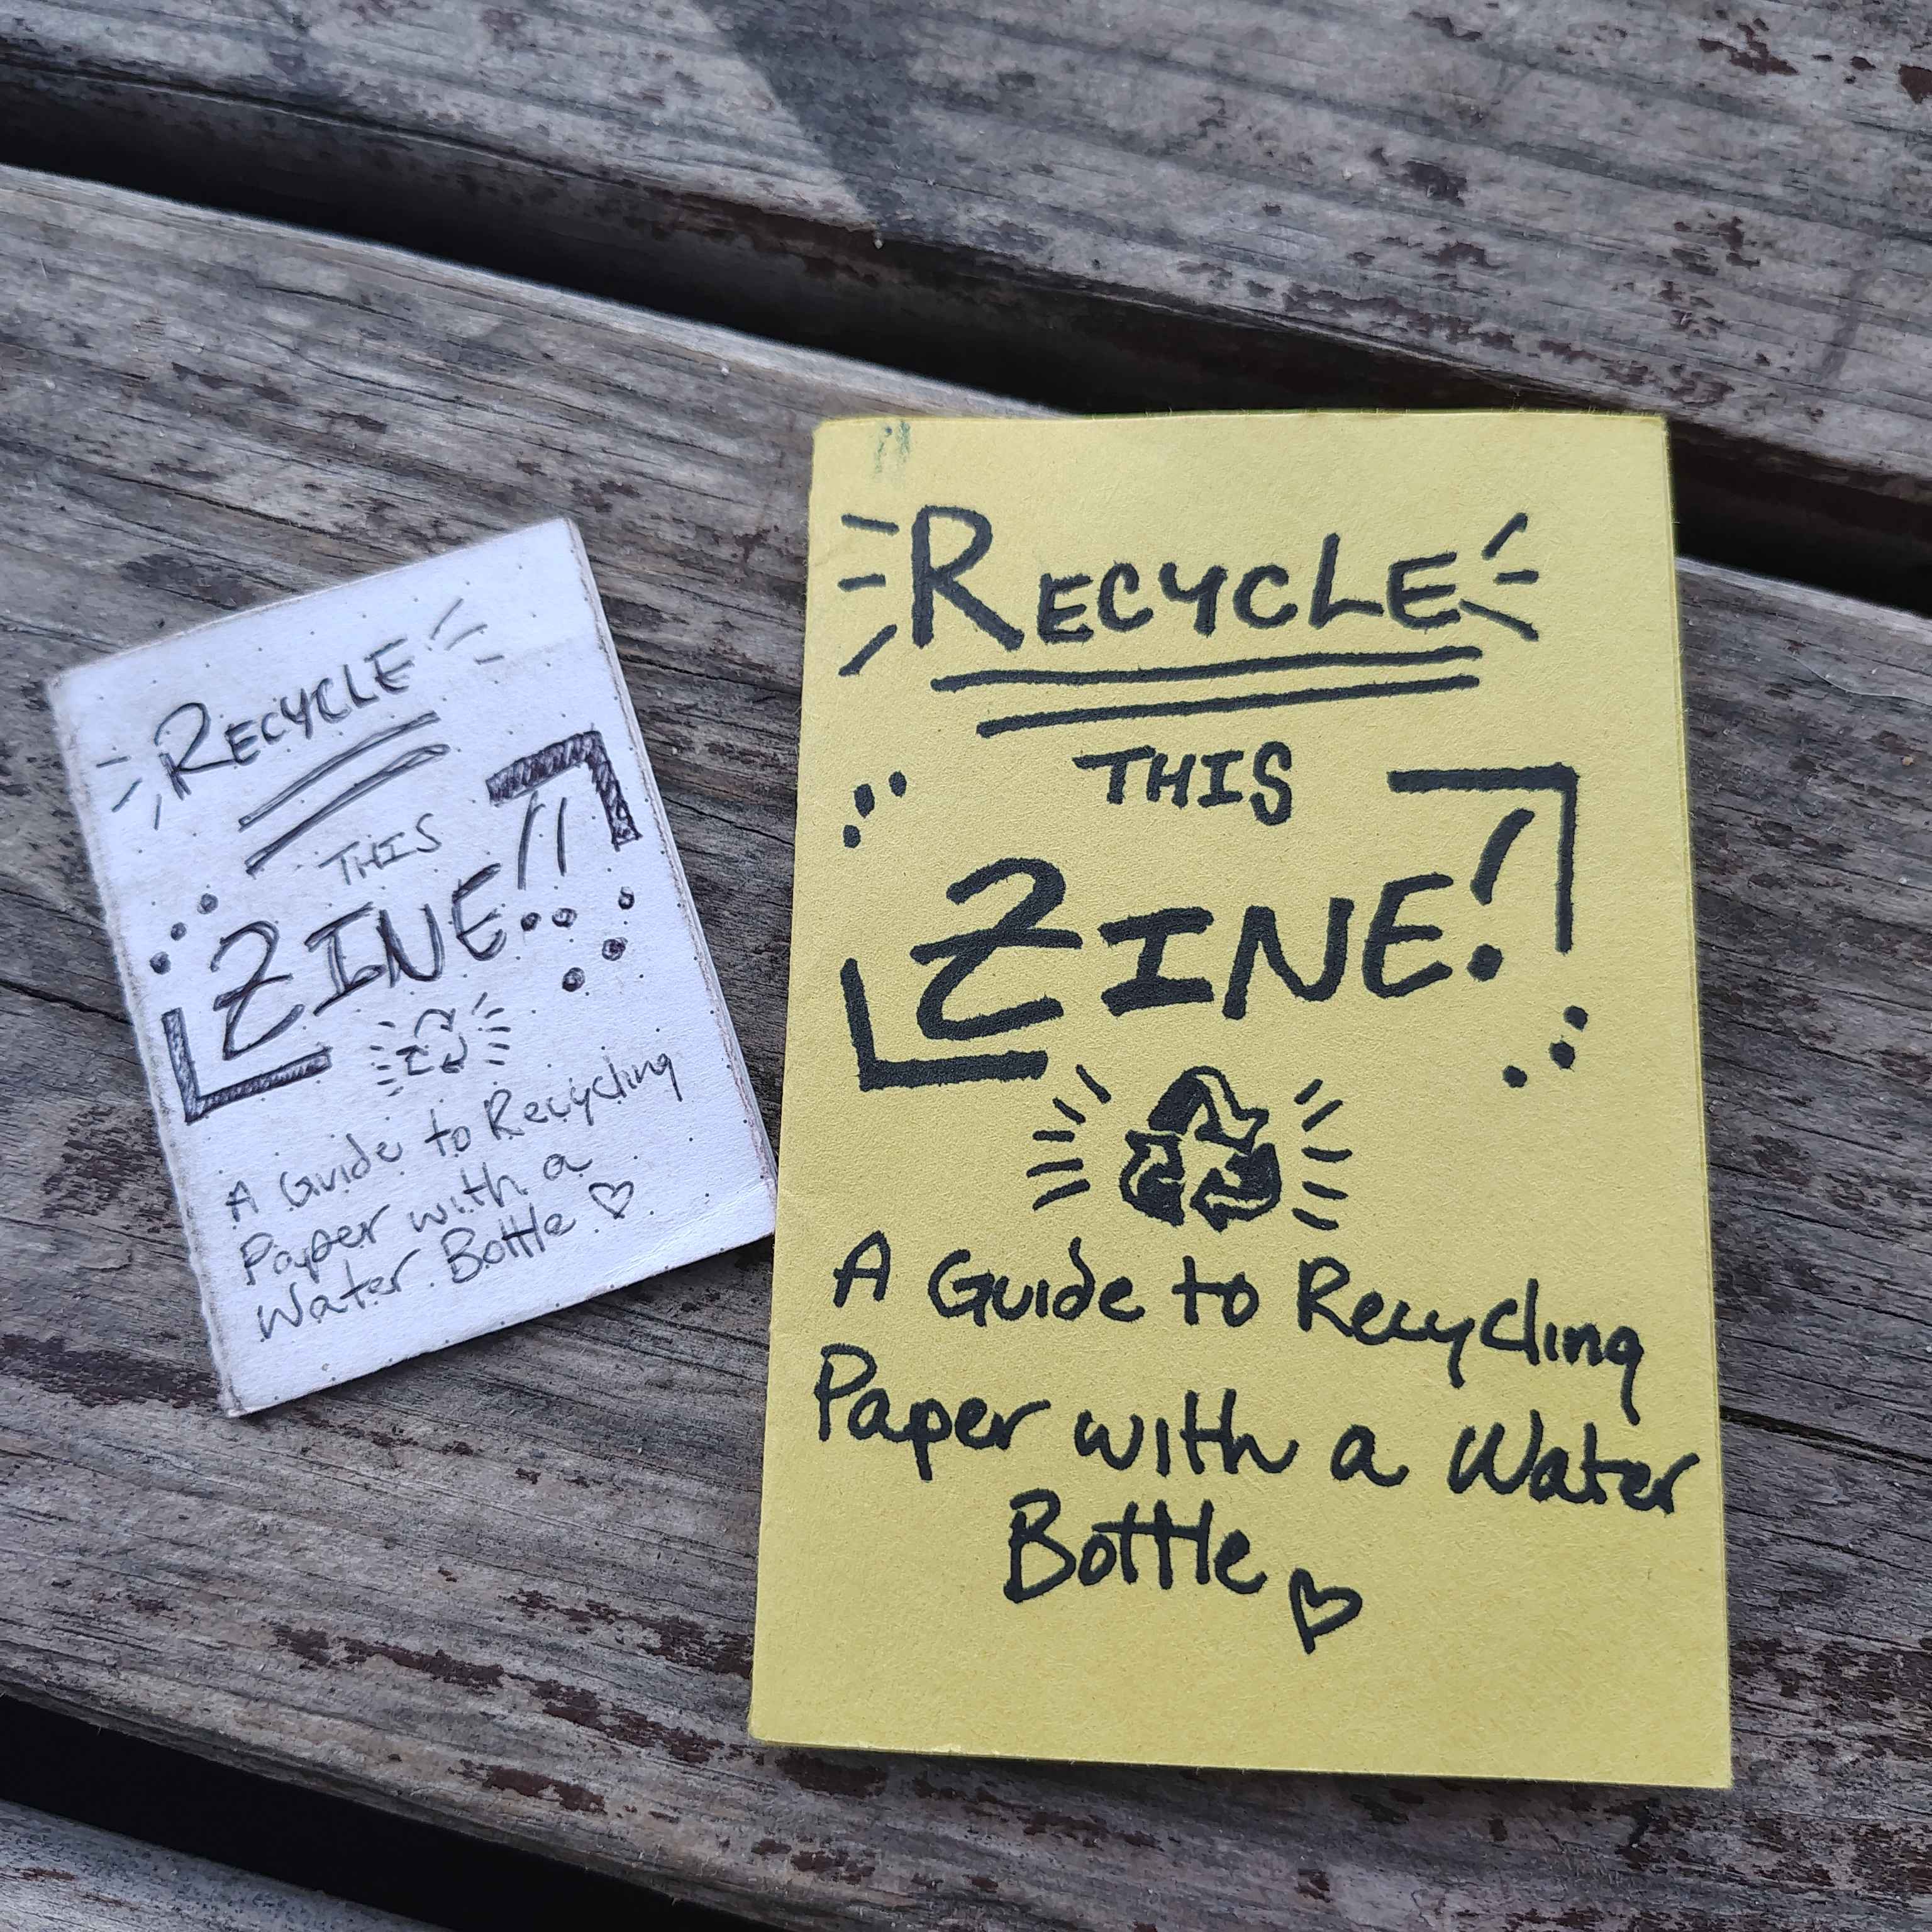 RECYCLE
THIS
ZINE!!
A Guide to Recycling
Paper with a
Water Bottle
RECYCLE
THIS
ZINE!
A Guide to Recycling
Paper with a Water
Bottle